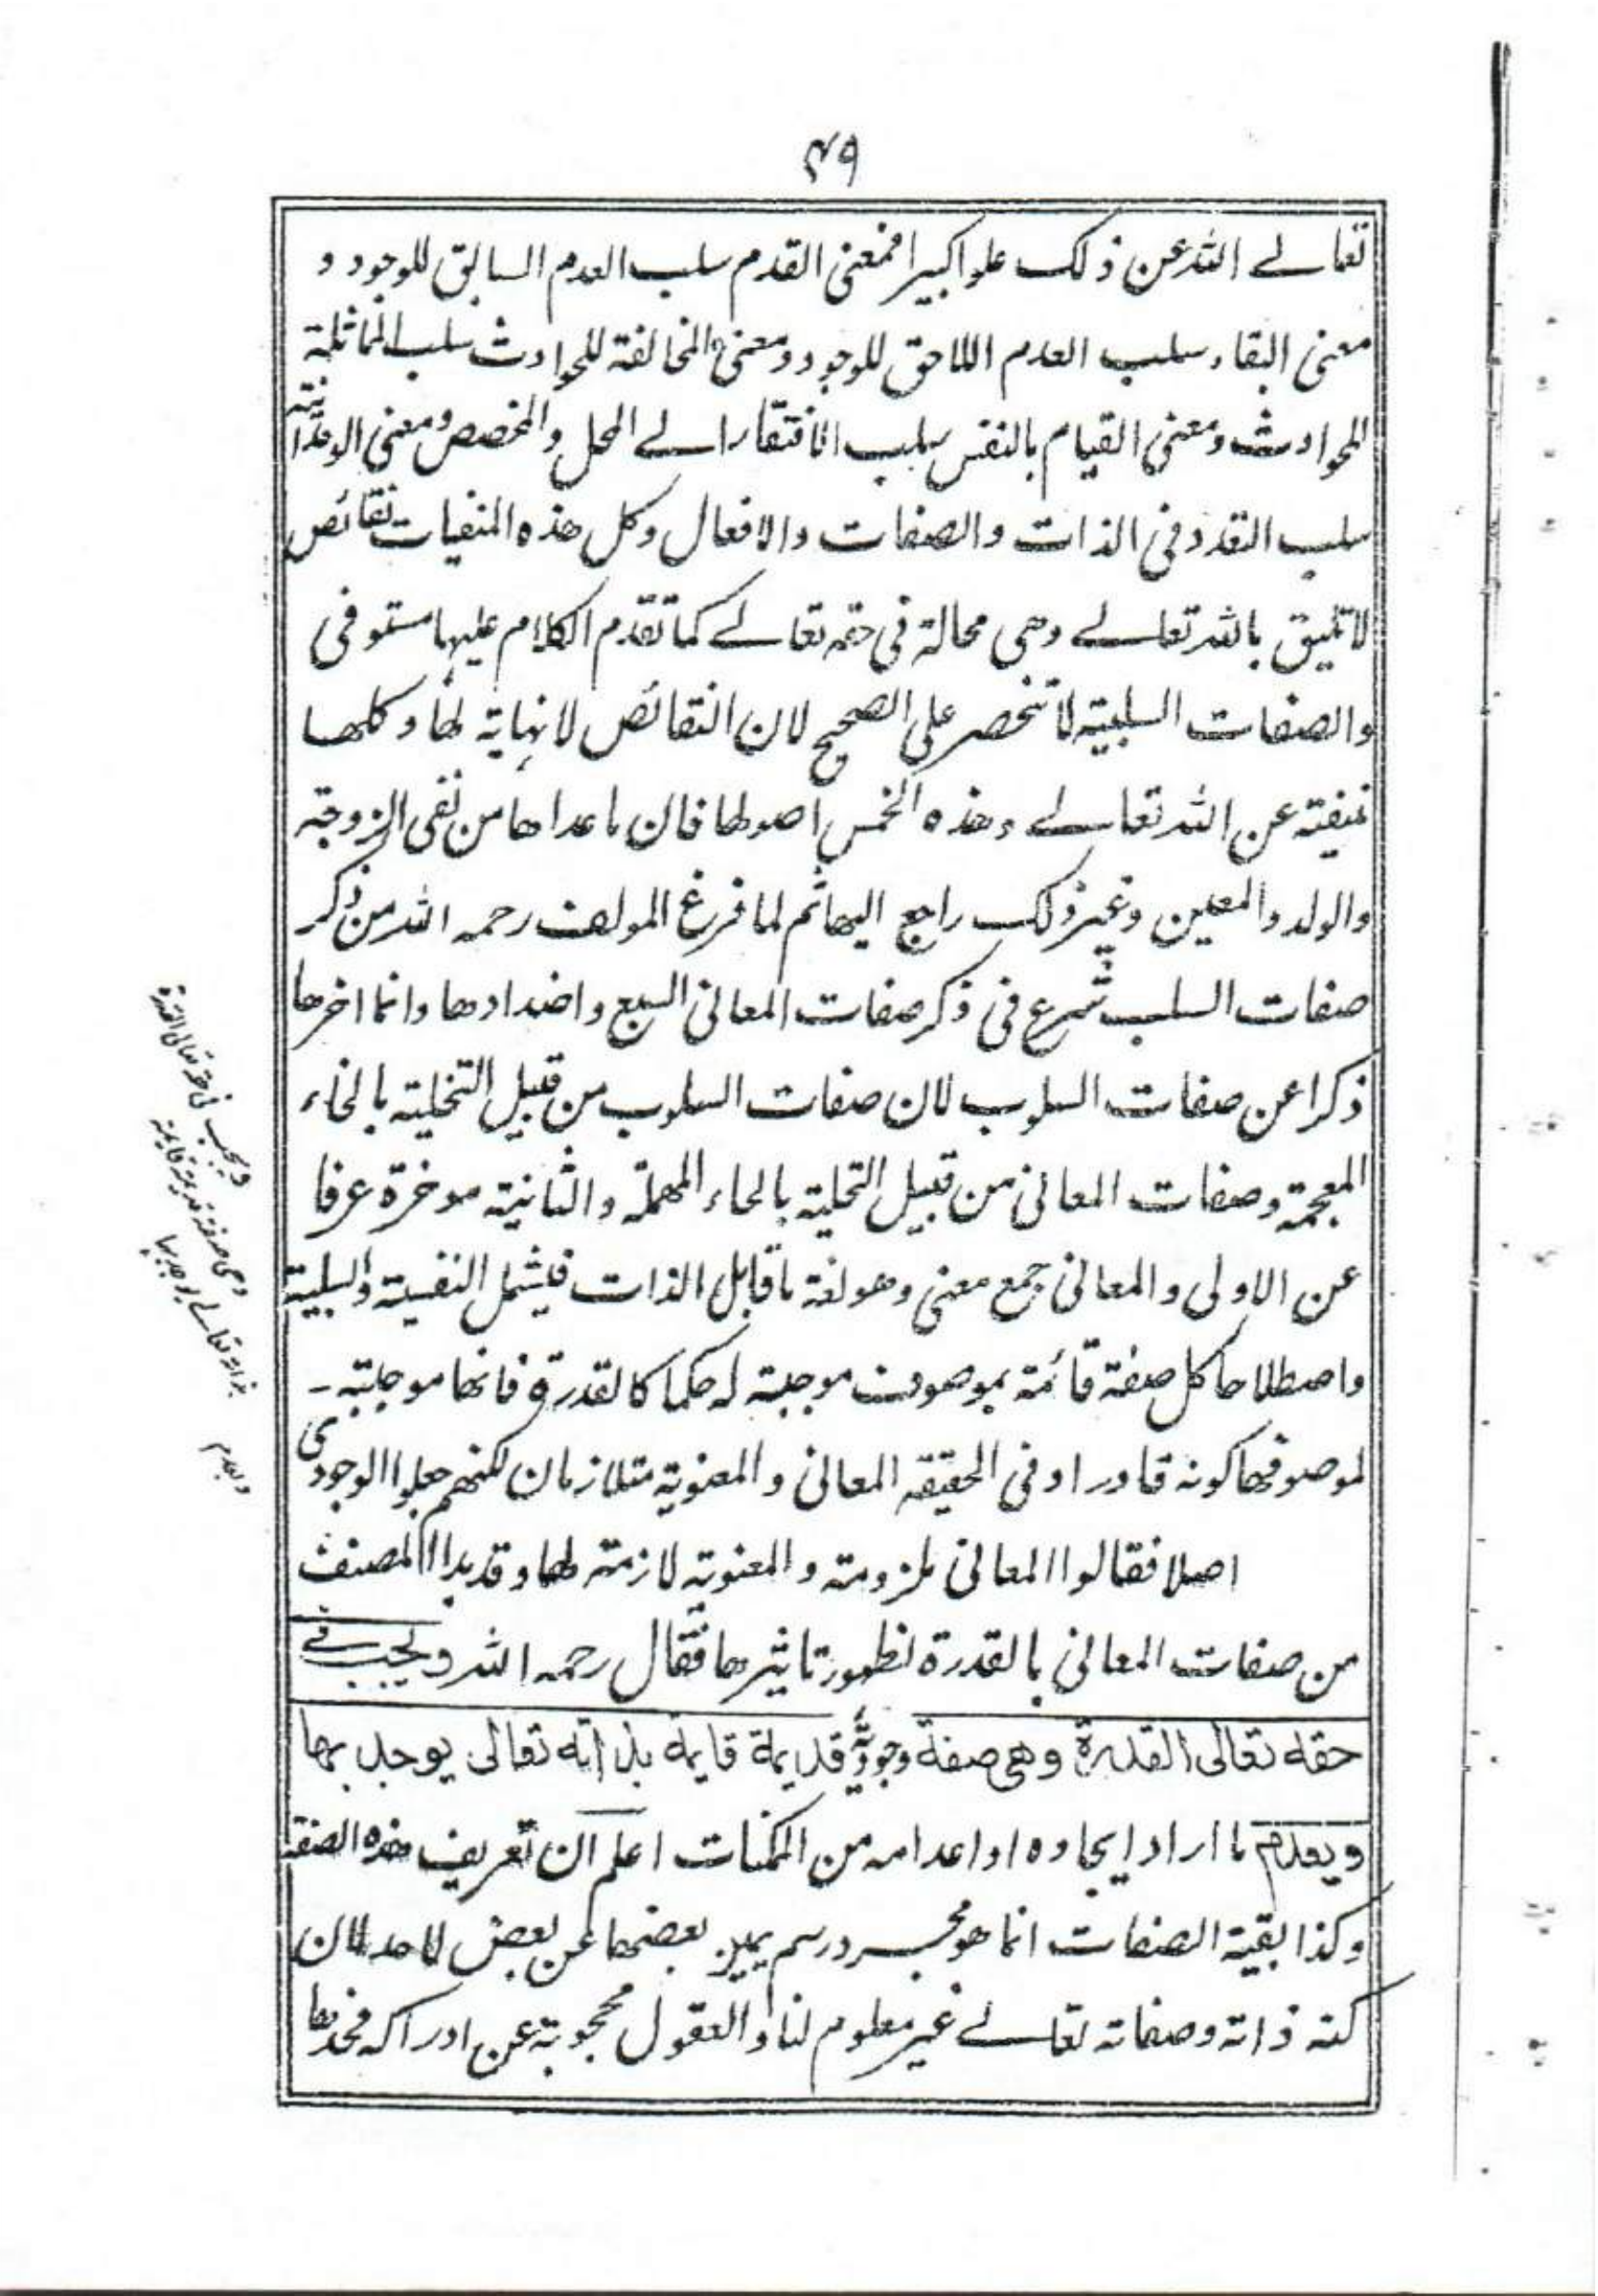 ٤٩
تعالے الله عن ذلك علوا كبيرا فمعنى القدم سلب العدم السابق للوجود و
معنى البقاء سلب العدم اللاحق للوجود و معنى المخالفة للحوادث سلب المماثلة
للحوادث و معنى القيام بالنفس سلب الافتقار الے المحل والمخصص و معنى الوحدانية
سلب التعدد فى الذات والصفات والافعال وكل هذه المنفيات نقائص
لا تليق بالله تعالے وهى محالة فى حقه تعالے كما تقدم الكلام عليها مستوفى
والصفات السلبية لا تنحصر على الصحيح لان النقائص لا نهاية لها وكلها
منفية عن الله تعالے وهذه الخمس اصولها فان ما عداها من نفى الزوجة
والولد والمعين وغير ذلك راجع اليها ثم لما فرغ المولف رحمه الله من ذكر
صفات السلب شرع فى ذكر صفات المعانى السبع واضدادها وانما اخرها
ذكرا عن صفات السلوب لان صفات السلوب من قبيل التخلية بالخاء
المعجمة وصفات المعانى من قبيل التحلية بالحاء المهملة والثانية موخرة عرفا
عن الاولى والمعانى جمع معنى وهو لغة ما قابل الذات فيشمل النفسية والسلبية
واصطلاحا كل صفة قائمة بموصوف موجبة له حكما كالقدرة فانها موجبة -
لموصوفها كونه قادرا وفى الحقيقه المعانى والمعنوية متلازمان لكنهم جعلوا الوجودى
اصلا فقالوا المعانى ملزومة والمعنوية لازمة لها وقد بدا المصنف
من صفات المعانى بالقدرة لظهور تاثيرها فقال رحمه الله ويجب فے
حقه تعالى القدرة وهى صفة وجودية قديمة قايمة بذاته تعالى يوجد بها
ويعدم ما اراد ايجاده او اعدامه من الممكنات اعلم ان تعريف هذه الصفة
وكذا بقية الصفات انما هو مجرد رسم يميز بعضها عن بعض لا حد لان
كنه ذاته وصفاته تعالے غير معلوم لنا والعقول محجوبة عن ادراكه فحدها
ويجب فى حقه تعالى القدرة
وهى صفة قديمة قايمة
بذاته تعالے يوجد بها
ويعدم